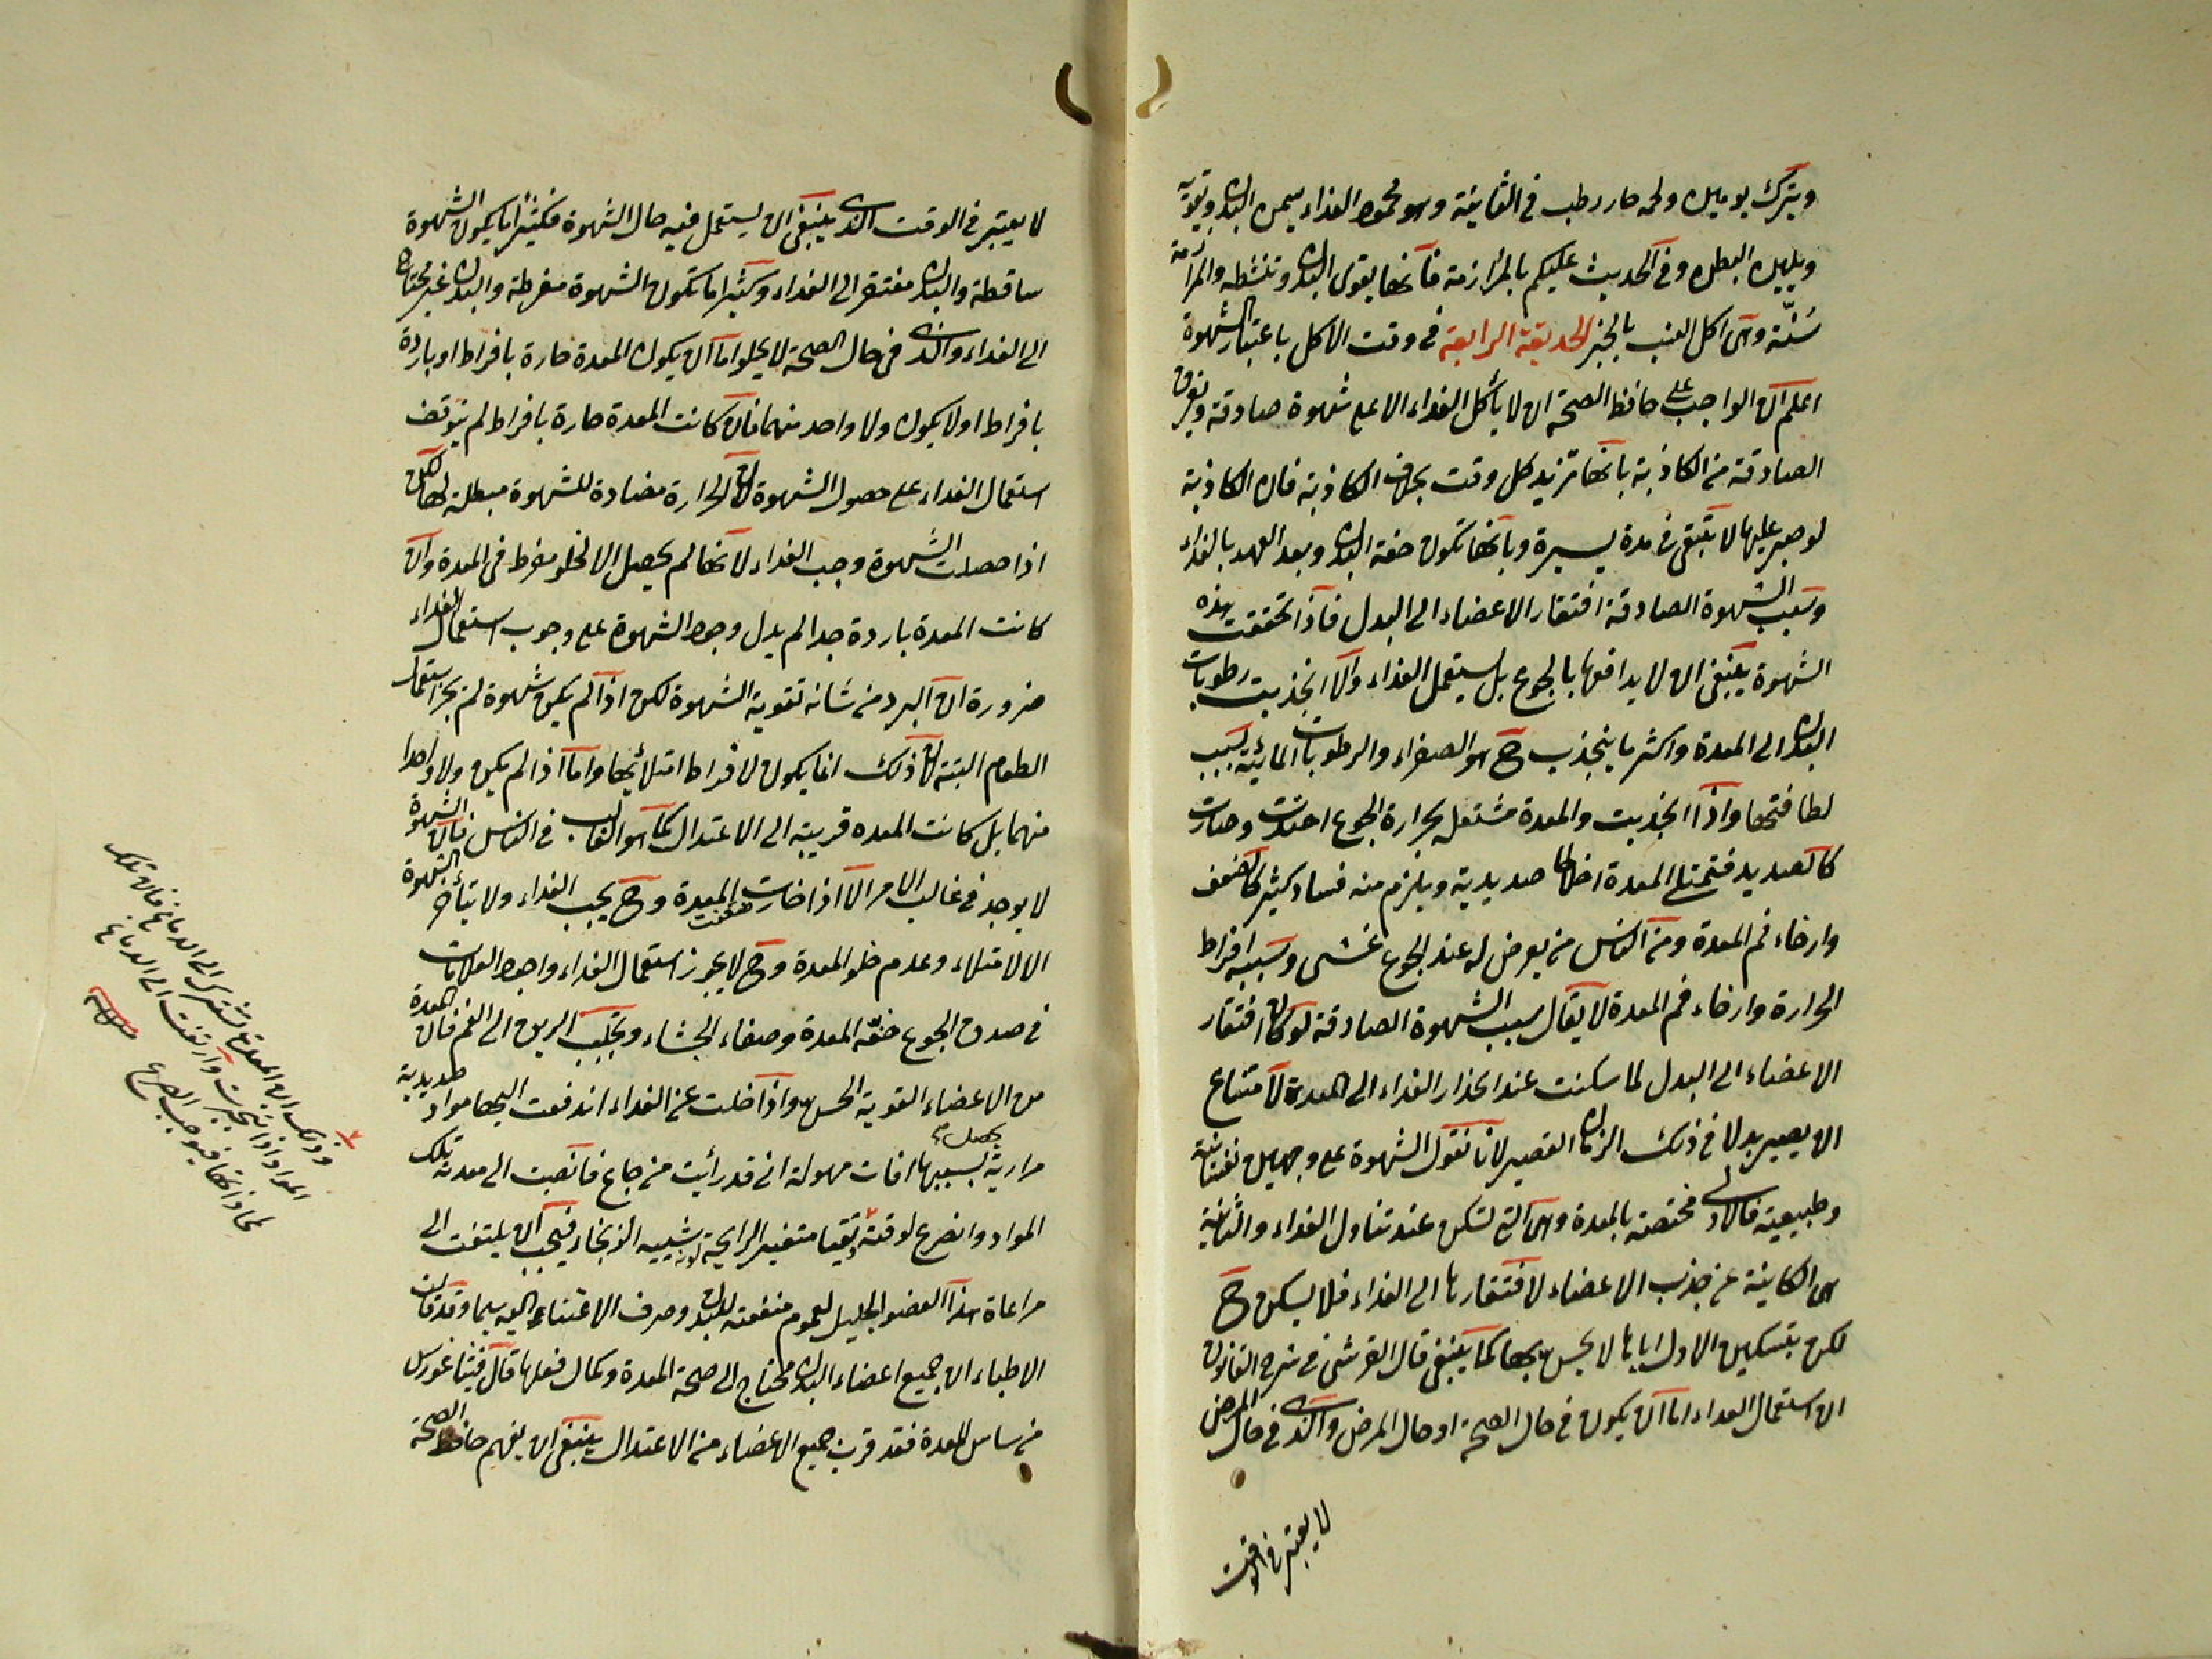 ويترك يومين ولحمه حار رطب في الثانية وهو محمود الغذاء يسمن البدن ويقويه
ويلين البطن وفي الحديث عليكم بالمرازمة فانها يقوى البدن وتنشطه والمرازمة
سُنّة وهي اكل العنب بالخبز الحديقة الرابعة في وقت الاكل باعتبار الشهوة
اعلم ان الواجب على حافظ الصحة ان لا يأكل الغذاء الا على شهوة صادقة ويفرق
الصادقة من الكاذبة بانها تزيد كل وقت بخلاف الكاذبة فان الكاذبة
لو صبر عليها لا تبقى في مدة يسيرة وبانها تكون خفة البدن وبعد العهد بالغذاء
وسبب الشهوة الصادقة افتقار الاعضاء الى البدل فاذا تحققت هذه
الشهوة ينبغي ان لا يدافعها بالجوع بل يستعمل الغذاء والا انجذبت رطوبات
البدن الى المعدة واكثر ما ينجذب ح هو الصفراء والرطوبات المائية بسبب
لطافتها واذا انجذبت والمعدة مشتعلة بحرارة الجوع احتدت وصارت
كالصديد فتمتلى المعدة اخلاطا صديدية ويلزم منه فساد كثير كالضعف
وارخاء فم المعدة ومن الناس من يعرض له عند الجوع غشى وسببه افراط
الحرارة وارخاء فم المعدة لا يقال سبب الشهوة الصادقة لو كان افتقار
الاعضاء الى البدل لما سكنت عند انحدار الغذاء الى المعدة لامتناع
ان يصير بدلا في ذلك الزمان القصير لانا نقول الشهوة على وجهين نفسانية
وطبيعية فالاولى مختصة بالمعدة وهي التي تسكن عند تناول الغذاء والثانية
هي الكاينة عن جذب الاعضاء لافتقارها الى الغذاء فلا يسكن ح
لكن بتسكين الاول اياها لا يحس بها كما ينبغي قال القرشي في شرح القانون
ان استعمال الغداء اما ان يكون في حال الصحة او حال المرض والذي في حال المرض
لا يعتبر في الوقت
لا يعتبر في الوقت الذي ينبغي ان يستعمل فيه حال الشهوة فكثيرا ما يكون الشهوة
ساقطة والبدن مفتقر الى الغداء وكثيرا ما تكون الشهوة مفرطة والبدن غير محتاج
الى الغداء والذي في حال الصحة لا يخلوا اما ان يكون المعدة حارة بافراط او باردة
بافراط او لا يكون ولا واحد منهما فان كانت المعدة حارة بافراط لم يتوقف
استعمال الغداء على حصول الشهوة لان الحرارة مضادة للشهوة مبطلة لها لكن
اذا حصلت الشهوة وجب الغداء لانها لم يحصل الا لخلو مفرط في المعدة وان
كانت المعدة باردة جدا لم يدل وجود الشهوة على وجوب استعمال الغداء
ضرورة ان البرد من شانه تقوية الشهوة لكن اذا لم يكن شهوة لم يجز استعمال
الطعام البتة لان ذلك انما يكون لافراط امتلائها واما اذا لم يكن ولا واحدا
منهما بل كانت المعده قريبة الى الاعتدال كما هو الغالب في الناس فان الشهوة
لا يوجد في غالب الامر الا اذا خارت المعدة وح يجب الغداء ولا يتأخر الشهوة
الا لامتلاء وعدم خلو المعدة وح لا يجوز استعمال الغداء واجود العلامات
في صدق الجوع خفّة المعدة وصفاء الجشاء وتحلب الريق الى الفم فان المعدة
من الاعضاء القوية الحس واذا خلت عن الغداء اندفعت اليها مواد صديدية
مرارية يحصل بسببها افات مهولة اني قد رأيت من جاع فانصبت الى معدته تلك
المواد وانصرع لوقته وتقيا متغير الرايحة لونه شبيه الزنجار فيجب ان يلتفت الى
مراعاة هذا العضو الجليل لعموم منفعته للبدن وصرف الاعتناء اليه سيما وقد قالت
الاطباء ان جميع اعضاء البدن محتاج الى صحة المعدة وكمال فعلها قال فيثاغورس
من ساس المعدة فقد قرب جميع الاعضاء من الاعتدال ينبغي ان يفهم حافظ الصحة
وذلك ان المعدة تشترك الى الدماغ فان تلك
المواد اذا تبخرت وارتفعت الى الدماغ
لمحاذاتها فيوجب الصرع